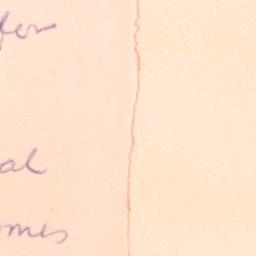 for
al
omes